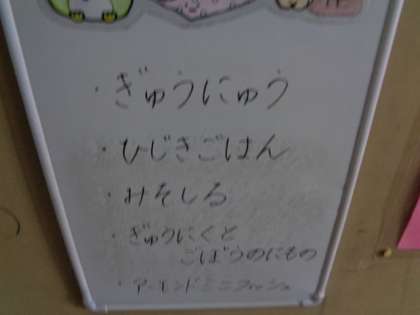 ・ぎゅうにゅう
・ひじきごはん
・みそしる
・ぎゅうにくと
ごぼうのにもの
・アーモンドミニフィッシュ